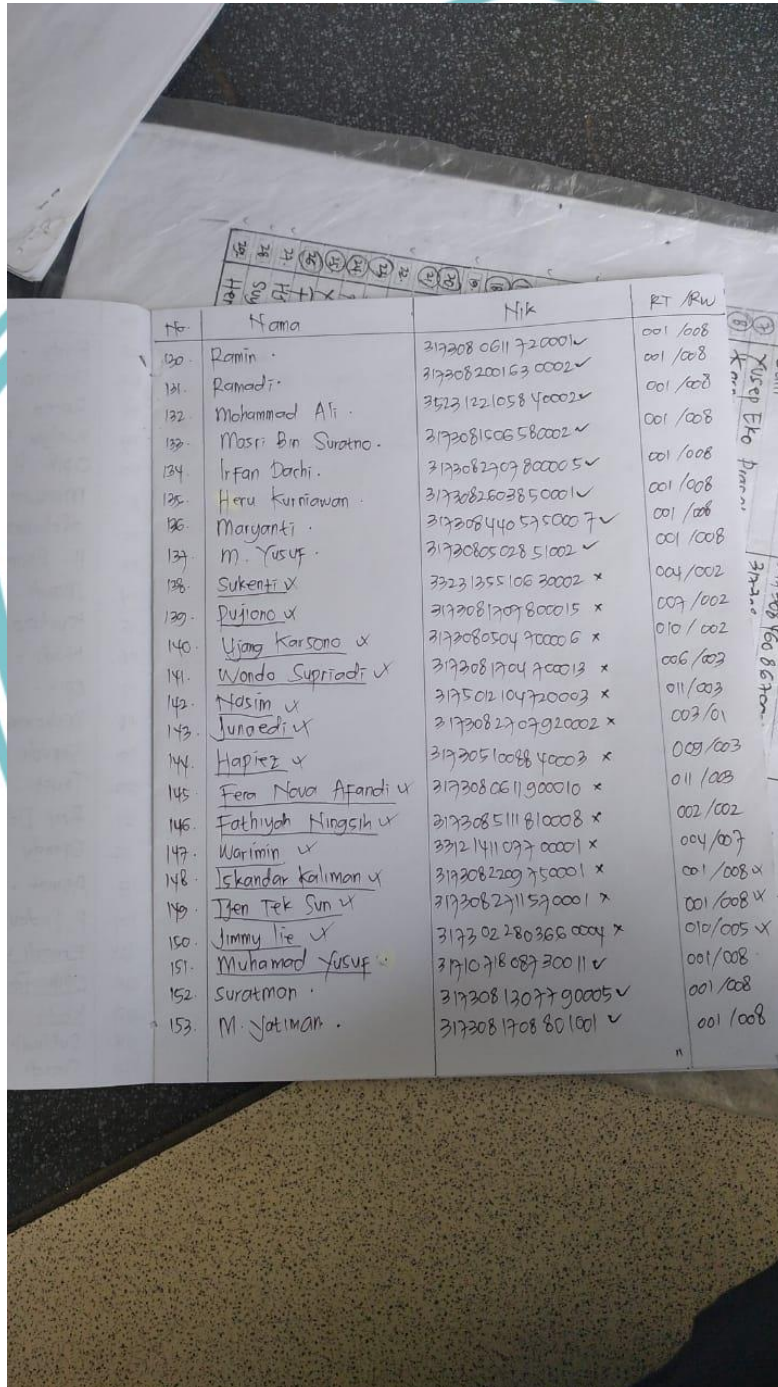 No. Nama Nik RT /RW
130. Ramin. 3173080611720001✓ 001 /008
131. Ramadi. 3173082001630002✓ 001 /008
132 Mohammad Ali. 3523122105840002✓ 001 /008
133. Masri Bin Suratno. 3173081506580002✓ 001 /008
134. Irfan Dachi. 3173082707800005✓ 001 /008
135. Heru Kurniawan. 3173082603850001✓ 001 /008
136. Maryanti. 3173084405750007✓ 001 /008
137. M. Yusuf. 3173080502851002✓ 001 /008
138. Sukenti x 3323135510630002 x 004/002
139. Pujiono x 3173081707800015 x 007/002
140. Ujang Karsono x 317308050470006 x 010/002
141. Wondo Supriadi x 3173081704700013 x 006/003
142. Nasim x 3175012104720003 x 011/003
143. Junaedi x 3173082707920002 x 003/01
144. Hapiez x 3173051008840003 x 009/003
145 Fera Nova Afandi x 3173080611900010 x 011/003
146. Fathiyah Ningsih x 3173085111810008 x 002/002
147. Warimin x 3312141107700001 x 004/007
148. Iskandar Kaliman x 3173082209750001 x 001/008 x
149. Tjen Tek Sun x 3173082711570001 x 001/008 x
150. Jimmy lie x 3173022803660004 x 010/005 x
151. Muhamad Yusuf. 3171071808730011✓ 001/008
152. Suratman. 3173081307790005✓ 001/008
153. M. Yatiman. 3173081708801001✓ 001/008
7 Yusep Eko
8